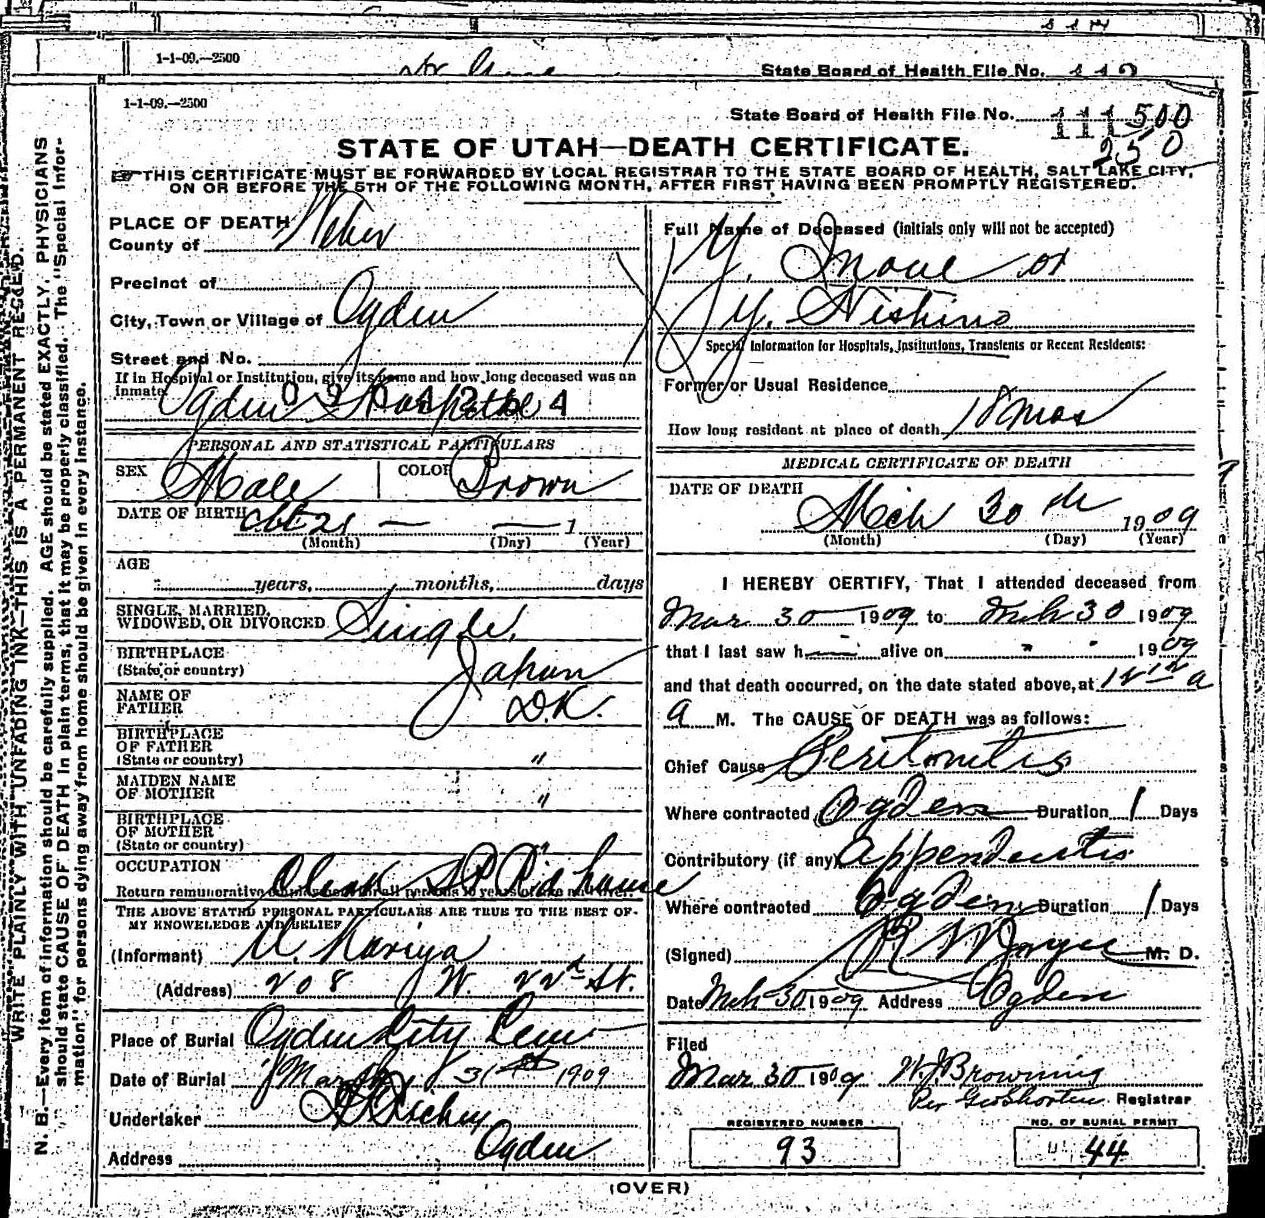 1-1-09.—2500
State Board of Health File No.
1-1-09.—2500
State Board of Health File No. 111500
250
STATE OF UTAH—DEATH CERTIFICATE.
THIS CERTIFICATE MUST BE FORWARDED BY LOCAL REGISTRAR TO THE STATE BOARD OF HEALTH, SALT LAKE CITY,
ON OR BEFORE THE 5TH OF THE FOLLOWING MONTH, AFTER FIRST HAVING BEEN PROMPTLY REGISTERED.
WRITE PLAINLY WITH UNFADING INK—THIS IS A PERMANENT RECORD.
N. B.—Every item of information should be carefully supplied. AGE should be stated EXACTLY. PHYSICIANS
should state CAUSE OF DEATH in plain terms, that it may be properly classified. The "Special Infor-
mation" for persons dying away from home should be given in every instance.
PLACE OF DEATH
County of Weber
Precinct of
City, Town or Village of Ogden
Street and No.
If in Hospital or Institution, give its name and how long deceased was an
Inmate Ogden Hospital
PERSONAL AND STATISTICAL PARTICULARS
SEX Male COLOR Brown
DATE OF BIRTH abt 21 — — 1
(Month) (Day) (Year)
AGE
years, months, days
SINGLE, MARRIED,
WIDOWED, OR DIVORCED Single.
BIRTHPLACE
(State or country) Japan
NAME OF
FATHER D.K.
BIRTHPLACE
OF FATHER
(State or country) "
MAIDEN NAME
OF MOTHER "
BIRTHPLACE
OF MOTHER
(State or country)
OCCUPATION
Return remunerative employment for all persons 10 years of age and over.
THE ABOVE STATED PERSONAL PARTICULARS ARE TRUE TO THE BEST OF
MY KNOWLEDGE AND BELIEF
(Informant) U. Kariya
(Address) 208 W. 22nd St.
Place of Burial Ogden City Cem
Date of Burial March 31st 1909
Undertaker
Address Ogden
Full Name of Deceased (initials only will not be accepted)
Y. Inoue or
Y. Nishino
Special Information for Hospitals, Institutions, Transients or Recent Residents:
Former or Usual Residence
How long resident at place of death 18 mos
MEDICAL CERTIFICATE OF DEATH
DATE OF DEATH
Mch 30th 1909
(Month) (Day) (Year)
I HEREBY CERTIFY, That I attended deceased from
Mar 30 1909 to Mch 30 1909
that I last saw h alive on " " 1909
and that death occurred, on the date stated above, at
a M. The CAUSE OF DEATH was as follows:
Chief Cause Peritonitis
Where contracted Ogden Duration 1 Days
Contributory (if any) Appendicitis
Where contracted Ogden Duration 1 Days
(Signed) M. D.
Date Mch 30 1909 Address Ogden
Filed
Mar 30 1909 W. J. Browning
Per Geo Shorten Registrar
REGISTERED NUMBER
93
NO. OF BURIAL PERMIT
44
(OVER)